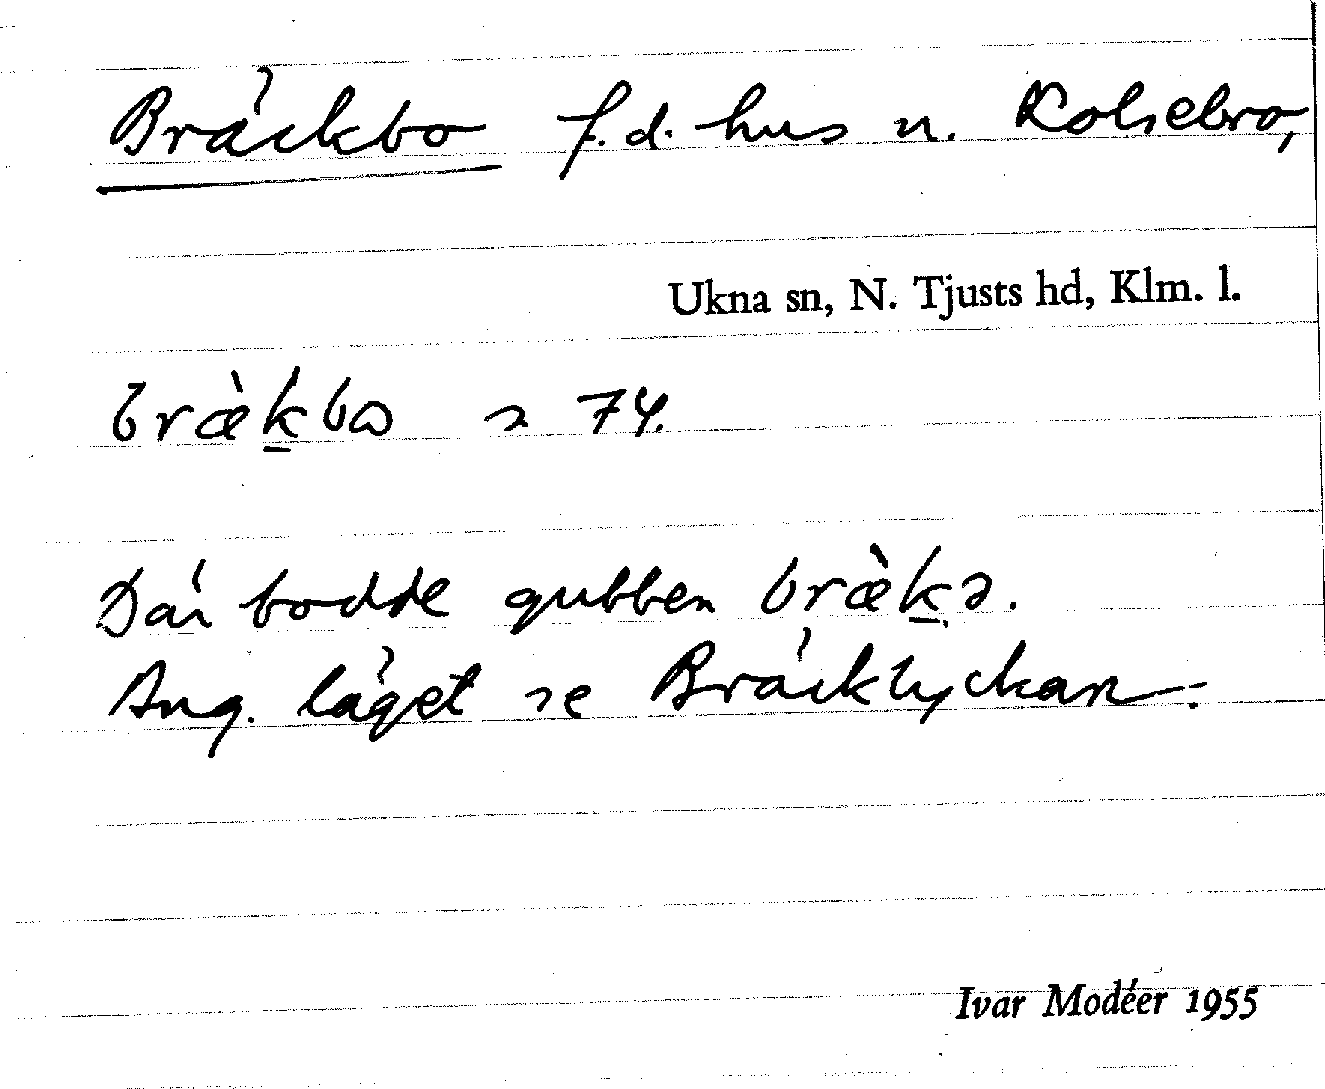 Bräckbo f.d. hus n. Kolsebro,
Ukna sn, N. Tjusts hd, Klm. l.
bræ̀k̲bω 74.
Där bodde gubben bræ̀k̲ə.
Ang. läget se Bräcklyckan.
Ivar Modéer 1955